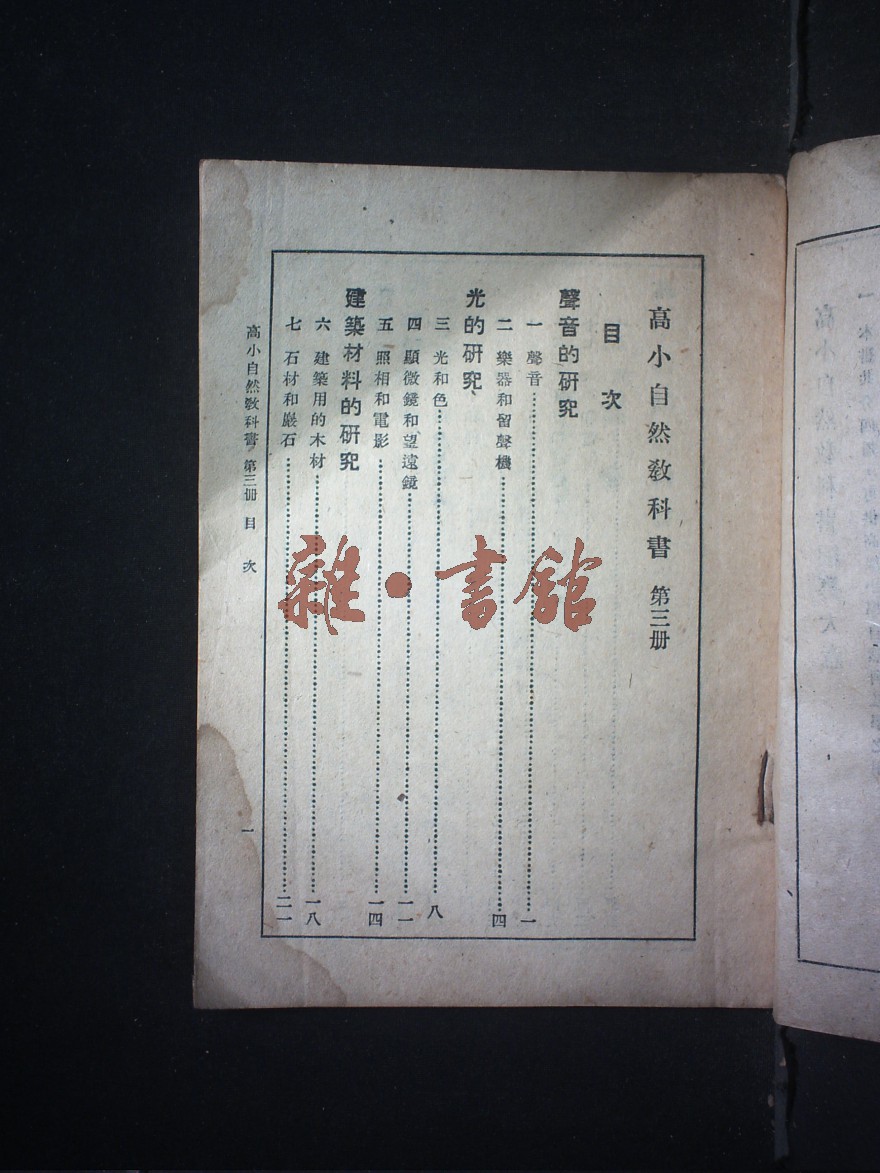 高小自然教科書 第三册
目次
聲音的研究
一 聲音 一
二 樂器和留聲機 四
光的研究
三 光和色 八
四 顯微鏡和望遠鏡 一一
五 照相和電影 一四
建築材料的研究
六 建築用的木材 一八
七 石材和巖石 二一
高小自然教科書 第三册 目次
一
雜·書館